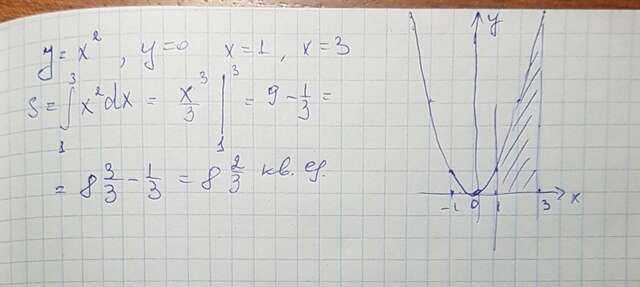 y = x², y=0 x=1, x=3
S = ∫₁³ x²dx = x³/3 |₁³ = 9 - 1/3 =
= 8 3/3 - 1/3 = 8 2/3 кв. ед.
y
-1 0 1 3 x